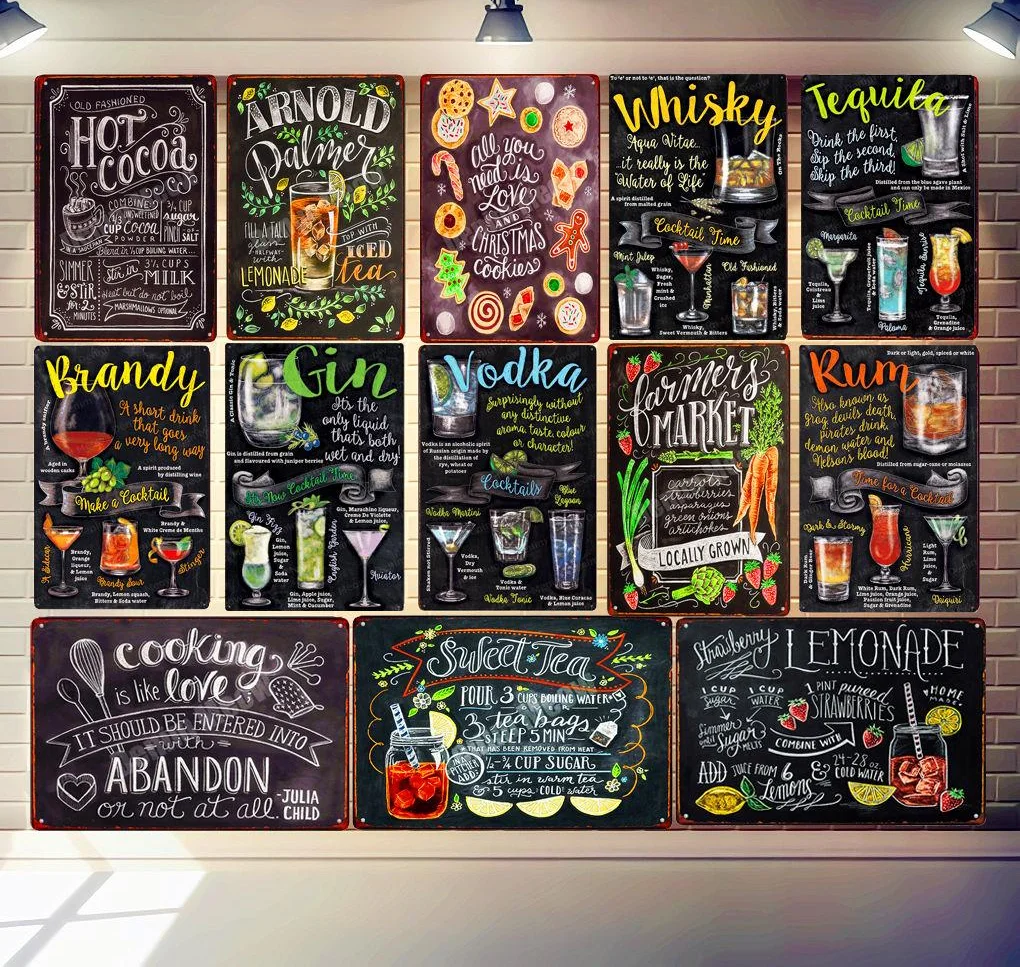 OLD FASHIONED
HOT
cocoa
COMBINE:
UNSWEETENED
1/3 CUP cocoa
POWDER
3/4 CUP
sugar
PINCH OF SALT
IN A SAUCEPAN
Blend in 1/3 CUP BOILING WATER...
SIMMER
& STIR
for 2
MINUTES
stir in 3 1/2 CUPS
MILK
Heat but do not boil
MARSHMALLOWS OPTIONAL
ARNOLD
Palmer
FILL A TALL
glass
HALFWAY
with
LEMONADE
TOP WITH
ICED
tea
all you
need is
Love
AND
CHRISTMAS
cookies
To 'e' or not to 'e', that is the question?
Whisky
Aqua Vitae..
it really is the
Water of Life
On The Rocks
A spirit distilled
from malted grain
Cocktail Time
Mint Julep
Whisky,
Sugar,
Fresh
mint &
Crushed
ice
Manhattan
Whisky,
Sweet Vermouth & Bitters
Old Fashioned
Whisky, Bitters
& Soda water
Tequila
Drink the first,
Sip the second,
Skip the third!
A Shot with Salt & Lime
Distilled from the blue agave plant
and can only be made in Mexico
Cocktail Time
Margarita
Tequila,
Cointreau
&
Lime
juice
Tequila, Grapefruit juice
& Soda water
Paloma
Tequila Sunrise
Tequila,
Grenadine,
& Orange juice
Brandy
A Brandy snifter
A short drink
that goes
a very long way
Aged in
wooden casks
A spirit produced
by distilling wine
Make a Cocktail
A Sidecar
Brandy,
Orange
liqueur,
& Lemon
juice
Brandy Sour
Brandy, Lemon squash,
Bitters & Soda water
Brandy &
White Creme de Menthe
Stinger
A Classic Gin & Tonic
Gin
It's the
only liquid
that's both
wet and dry!
Gin is distilled from grain
and flavoured with juniper berries
It's Now Cocktail Time
Gin Fizz
Gin,
Lemon
juice,
Sugar
&
Soda
water
English Garden
Gin, Apple juice,
Lime juice, Sugar,
Mint & Cucumber
Gin, Maraschino liqueur,
Creme De Violette
& Lemon juice,
Aviator
Vodka
Surprisingly without
any distinctive
aroma, taste, colour
or character!
Vodka is an alcoholic spirit
of Russian origin made by
the distillation of
rye, wheat or
potatoes
Cocktails
Vodka Martini
Shaken not Stirred
Vodka,
Dry
Vermouth
& Ice
Vodka &
Tonic water
Vodka Tonic
Blue
Lagoon
Vodka, Blue Curacao
& Lemon juice
farmers
MARKET
carrots
strawberries
asparagus
green onions
artichokes
LOCALLY GROWN
Dark or light, gold, spiced or white
Rum
Also known as
Grog, devils death,
pirates drink,
demon water and
Nelson's blood!
Distilled from sugar-cane or molasses
Time for a Cocktail
Dark & Stormy
Dark Rum &
Ginger Beer
Hurricane
White Rum, Dark Rum,
Lime juice, Orange juice,
Passion fruit juice,
Sugar & Grenadine
Light
Rum,
Lime
juice,
&
Sugar
Daiquiri
cooking
is like love.
IT SHOULD BE ENTERED INTO
with
ABANDON
or not at all.
-JULIA
CHILD
Sweet Tea
POUR 3 CUPS BOILING WATER
OVER
3 tea bags
STEEP 5 MIN
WHEN TEA HAS BEEN REMOVED FROM HEAT
IN A
PITCHER
ADD:
1/2-3/4 CUP SUGAR
stir in warm tea
& 5 cups COLD! water
Strawberry LEMONADE
1 CUP
Sugar
1 CUP
WATER
1 PINT pureed
STRAWBERRIES
HOME
MADE
Simmer
until
Sugar
MELTS
COMBINE WITH
ADD JUICE FROM 6
Lemons
& 24-28 oz.
COLD WATER